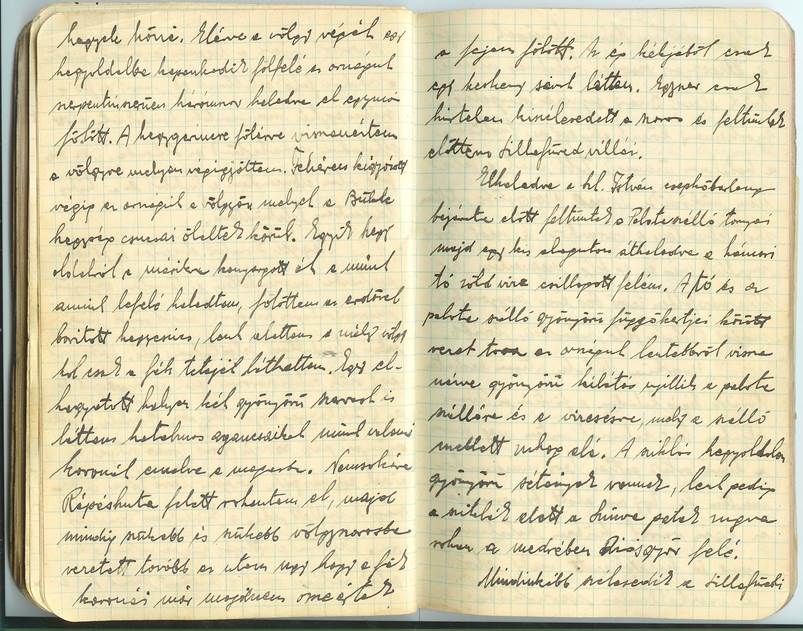 hegyek közé. Elérve a völgy végét egy
hegyoldalba kapaszkodik fölfelé az országút
szerpentinszerűen háromszor haladva el egymás
fölött. A hegygerincre fölérve visszanéztem
a völgyre melyen végigjöttem. Fehéren kígyózott
végig az országút a völgyön melyet a Bükk
hegység csúcsai öleltek körül. Egyik hegy
oldaláról a másikra kanyargott át s mint
amint lefelé haladtam, fölöttem az erdővel
borított hegygerinc, lent alattam a mély völgy
hol csak a fák tetejét láthattam. Egy el-
hagyatott helyen két gyönyörű szarvast is
láttam hatalmas agancsaikat mint valami
koronát emelve a magasba. Nemsokára
Répáshuta felett rohantam el, majd
mindig szűkebb és szűkebb völgyszorosba
vezetett tovább az utam úgy hogy a fák
koronái már majdnem összeértek
a fejem fölött. Az ég kékjéből csak
egy keskeny sávot láttam. Egyszer csak
hirtelen kiszélesedett a szoros és feltűntek
előttem Lillafüred villái.
Elhaladva a Szt. István cseppkőbarlang
bejárata előtt feltűntek a Palotaszálló tornyai
majd egy kis alagúton áthaladva a hámori
tó zöld vize csillogott felém. A tó és a
palota szálló gyönyörű függőkertjei között
vezet tova az országút lentebbről vissza
nézve gyönyörű kilátás nyílik a palota
szállóra és a vízesésre, mely a szálló
mellett zuhog alá. A sziklás hegyoldalon
gyönyörű sétányok vannak, lent pedig
a sziklák alatt a Szinva patak zúgva
rohan a medrében Diósgyőr felé.
Mindinkább szélesedik a lillafüredi